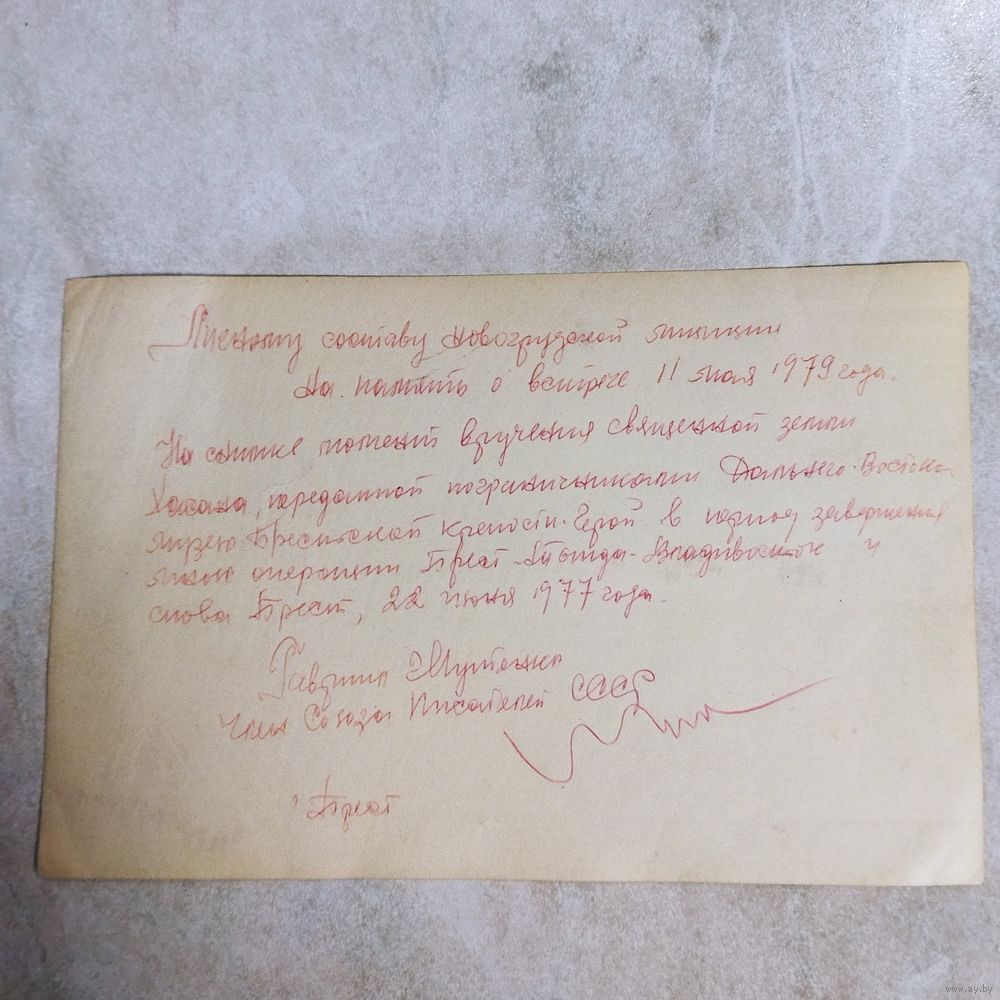 Личному составу Новогрудской милиции
На память о встрече 11 мая 1979 года.
На снимке момент вручения священной земли
Хасана, переданной пограничниками Дальнего Востока
музею Брестской крепости-Герой в период завершения
мною операции Брест - Владивосток и
снова Брест, 22 июня 1977 года.
Гавриил
Член Союза Писателей СССР
Брест
www.ay.by